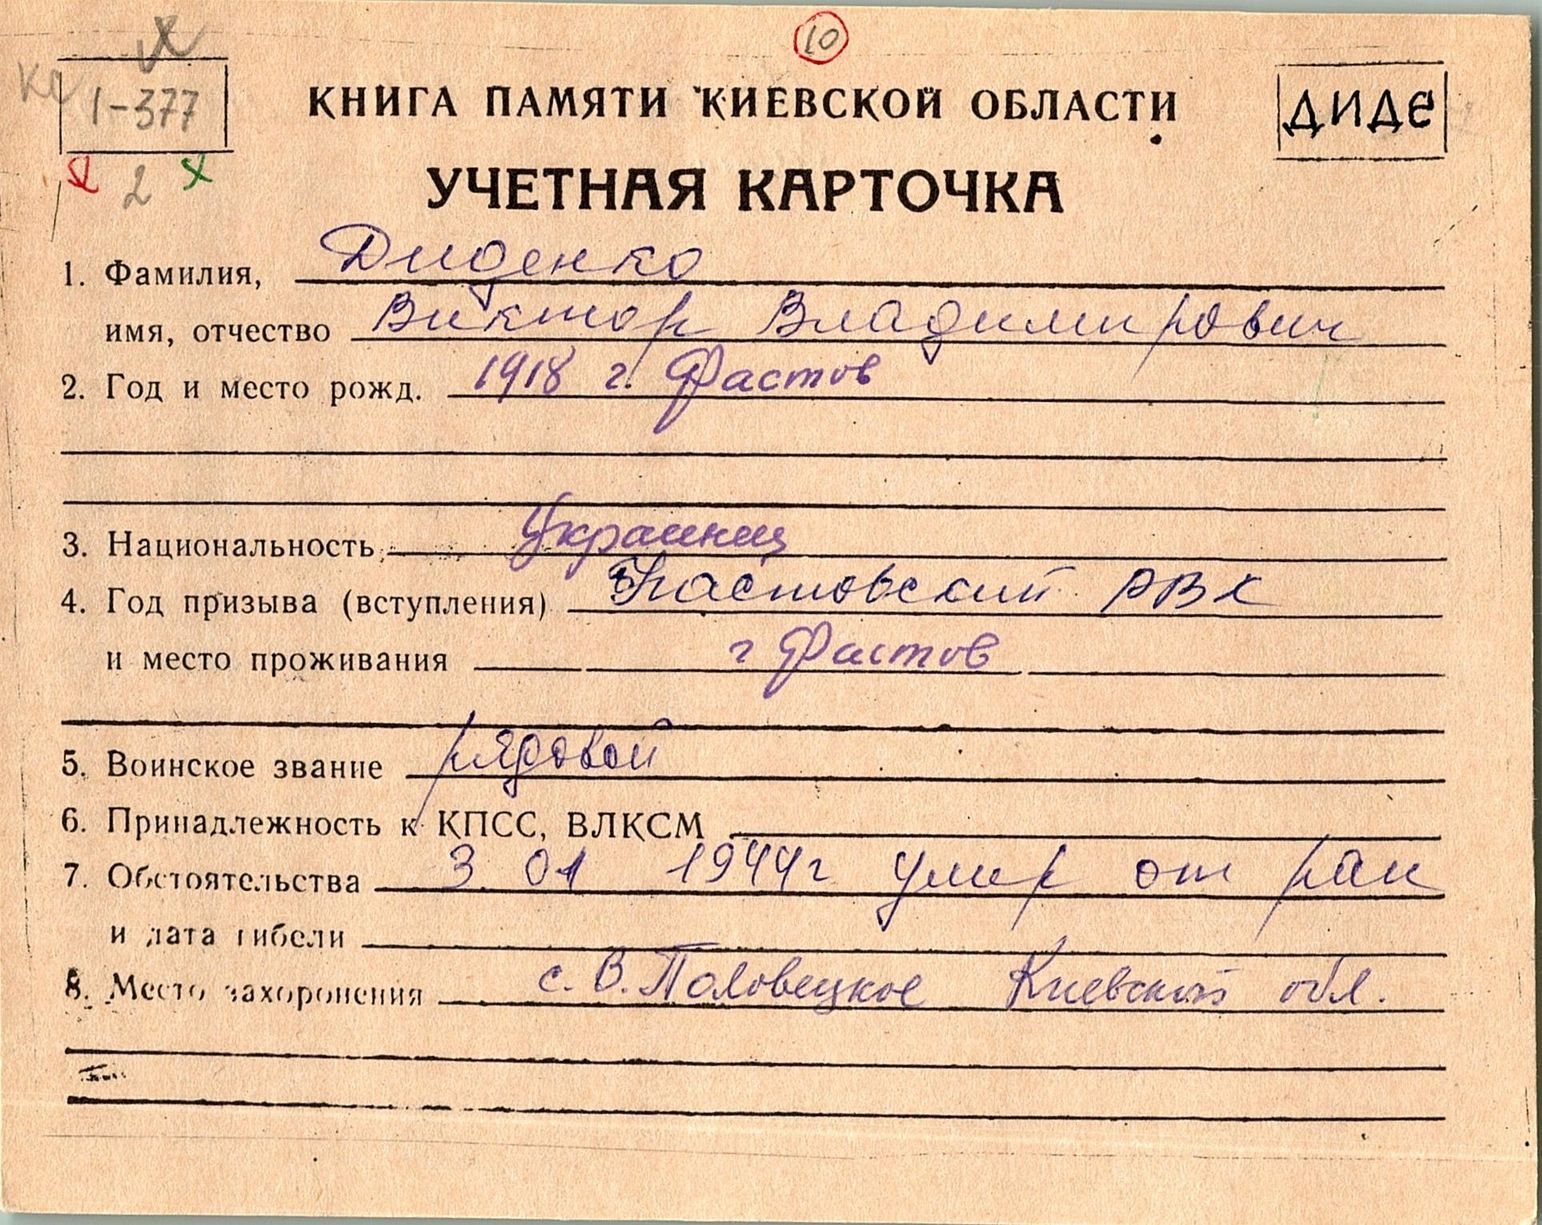 10
1-377
КНИГА ПАМЯТИ КИЕВСКОЙ ОБЛАСТИ
ДИДЕ
2
УЧЕТНАЯ КАРТОЧКА
1. Фамилия, Диденко
имя, отчество Виктор Владимирович
2. Год и место рожд. 1918 г. Фастов
3. Национальность Украинец
4. Год призыва (вступления) Фастовский РВК
и место проживания г Фастов
5. Воинское звание рядовой
6. Принадлежность к КПСС, ВЛКСМ
7. Обстоятельства 3. 01 1944г умер от ран
и дата гибели
8. Место захоронения с. В. Половецкое Киевской обл.